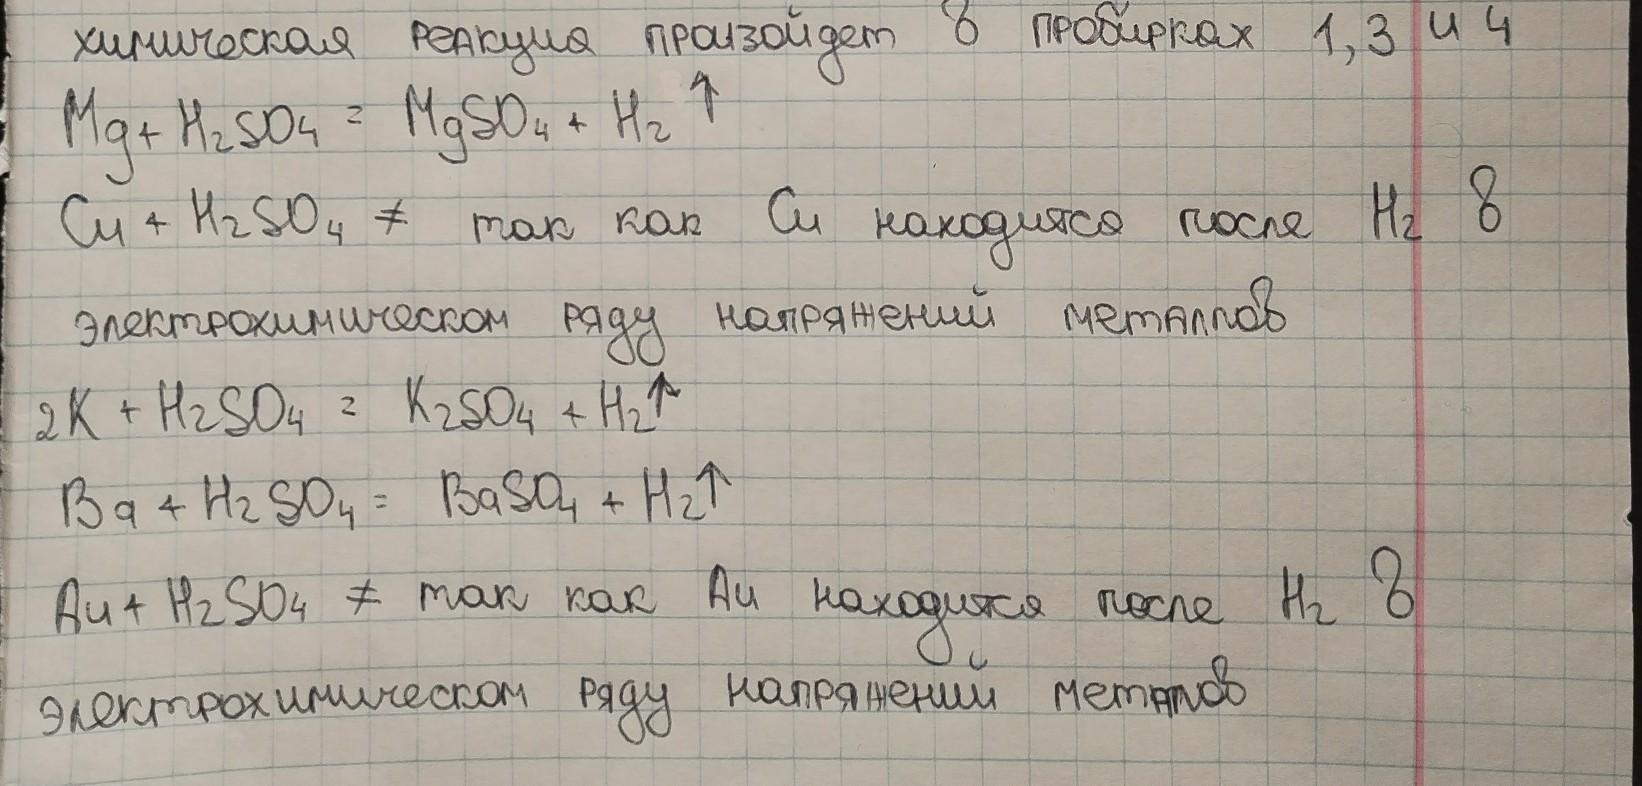 химическая реакция произойдет в пробирках 1, 3 и 4
Mg + H₂SO₄ = MgSO₄ + H₂ ↑
Cu + H₂SO₄ ≠ так как Cu находится после H₂ в
электрохимическом ряду напряжений металлов
2K + H₂SO₄ = K₂SO₄ + H₂↑
Ba + H₂SO₄ = BaSO₄ + H₂↑
Au + H₂SO₄ ≠ так как Au находится после H₂ в
электрохимическом ряду напряжений металлов